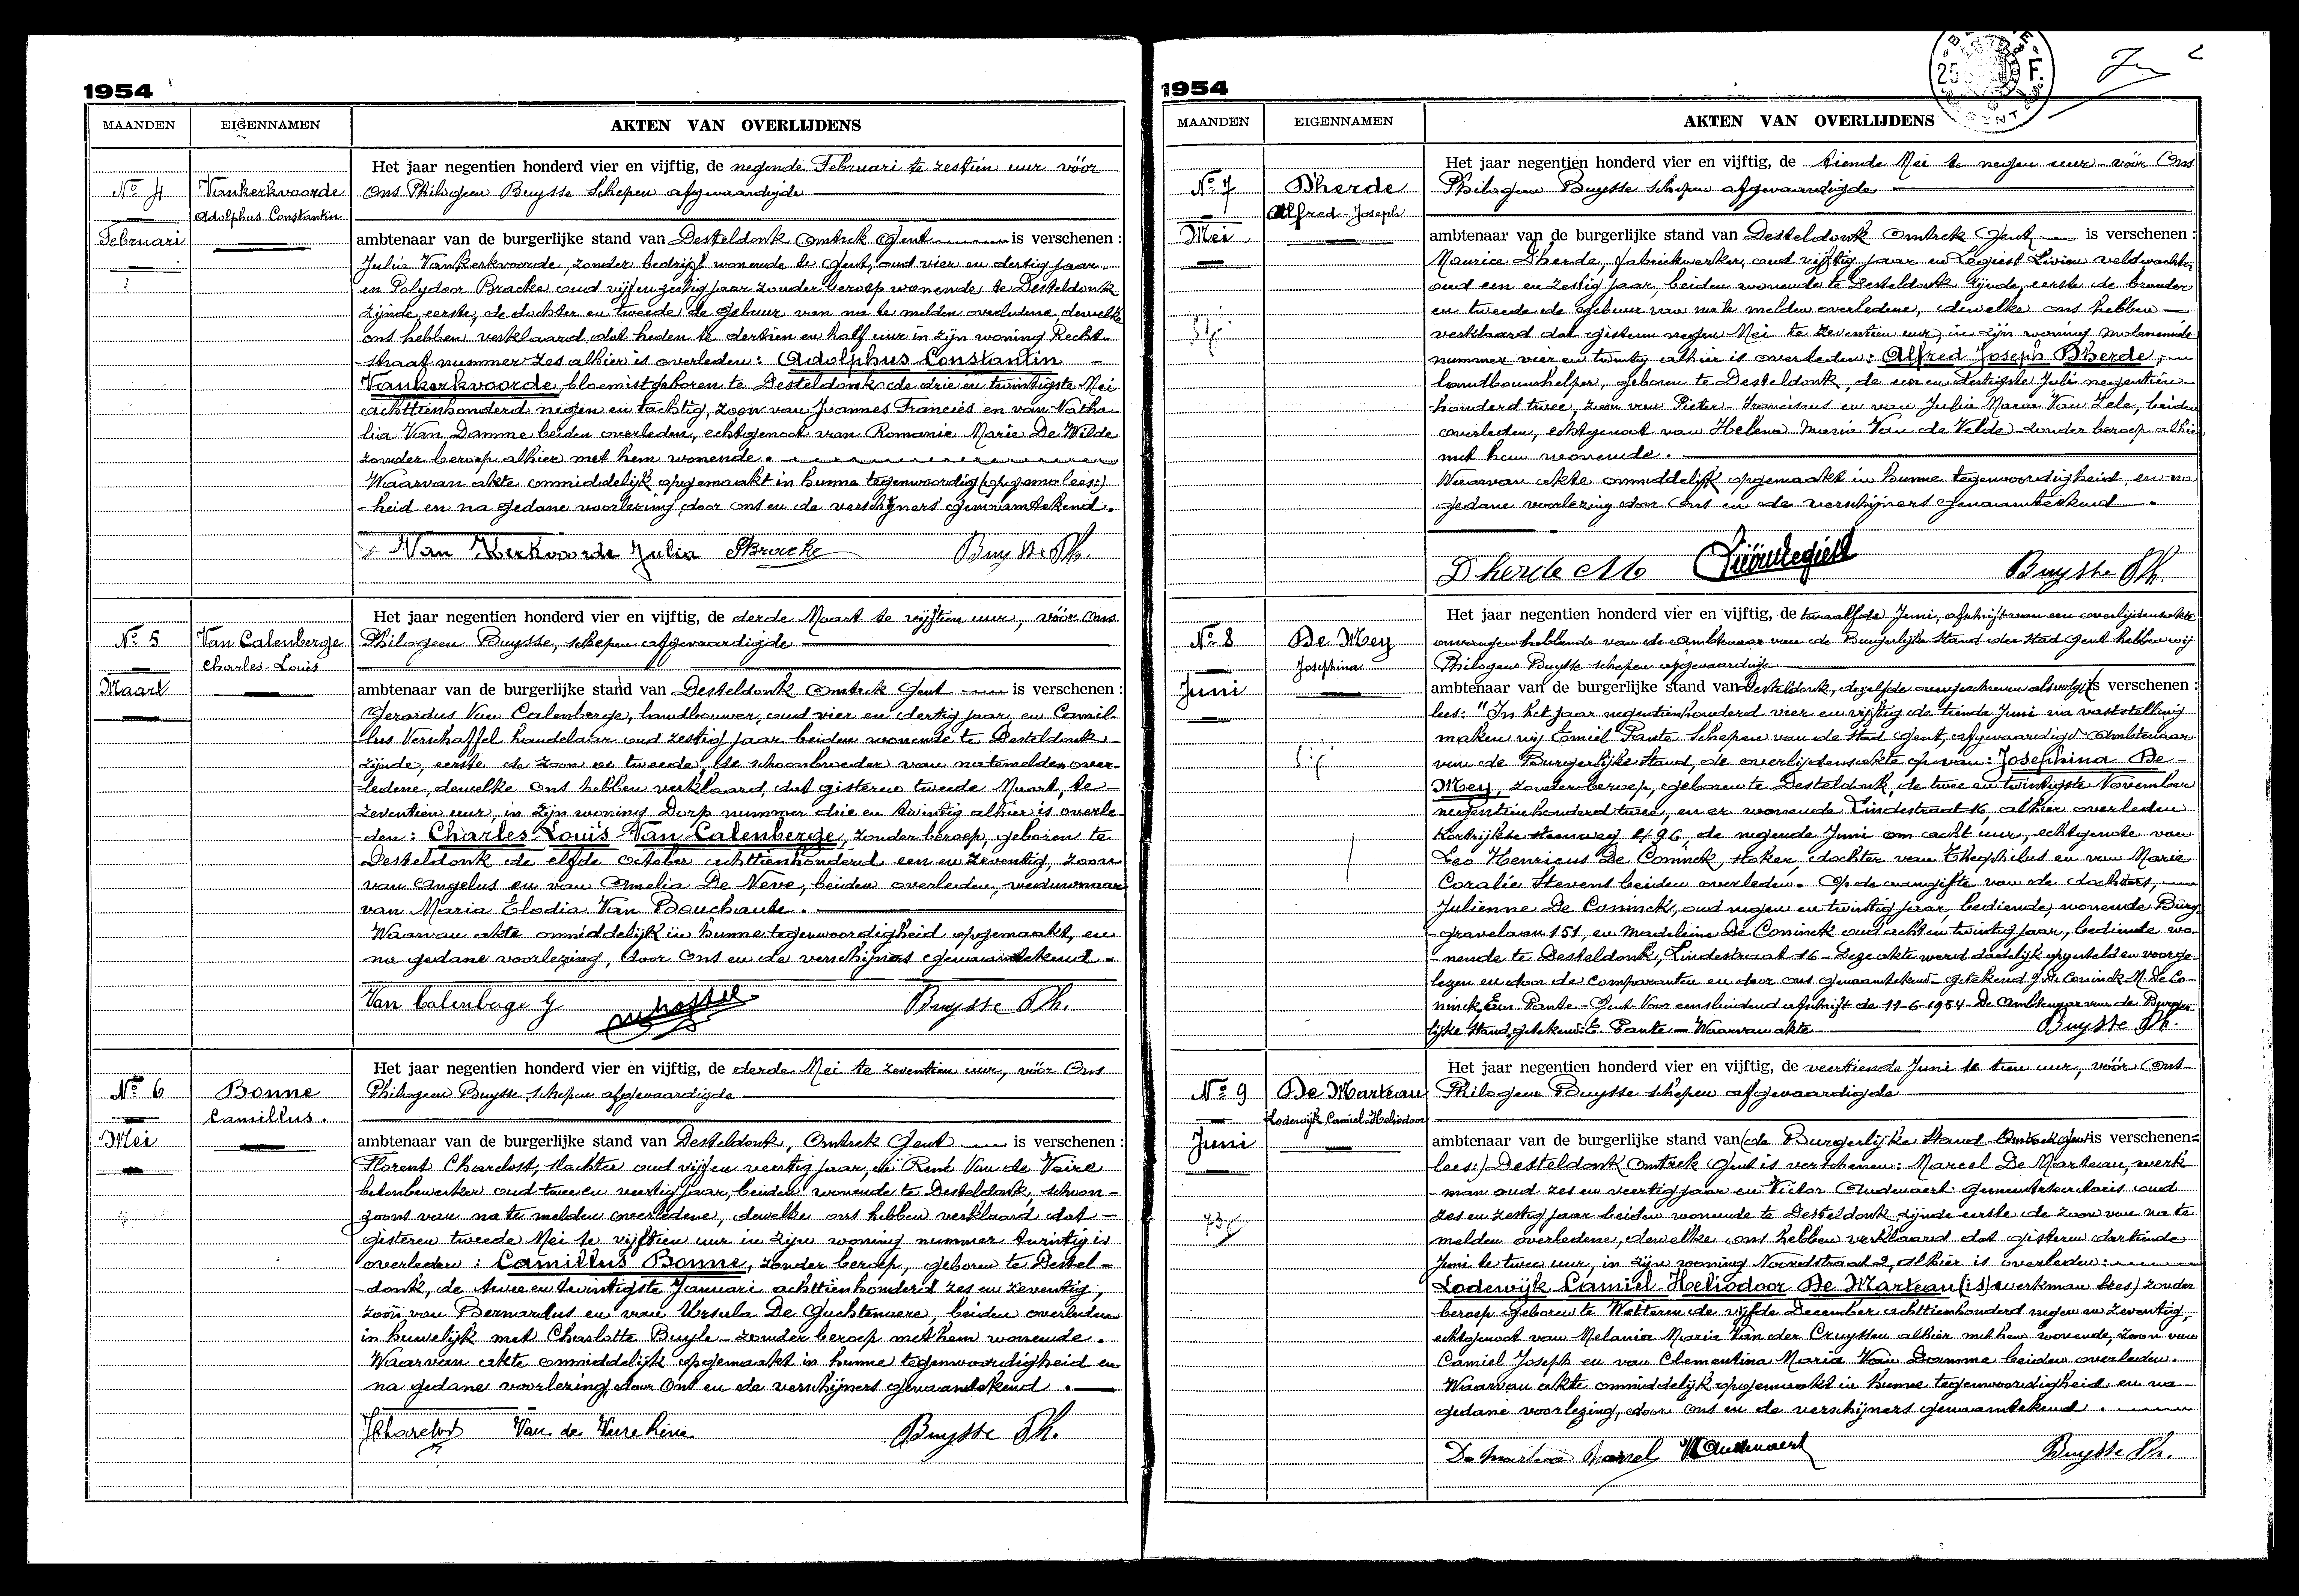 1954
MAANDEN EIGENNAMEN AKTEN VAN OVERLIJDENS
Het jaar negentien honderd vier en vijftig, de negende Februari te zestien uur vóór
No 4 Vankerkvoorde Ons Philogeen Buysse Schepen afgevaardigde
Adolphus Constantin
Februari ambtenaar van de burgerlijke stand van Desteldonk Omtrek Gent is verschenen :
Julia Vankerkvoorde, zonder bedrijf wonende te Gent, oud vier en dertig jaar
en Polydoor Bracke oud vijf en zestig jaar zonder beroep wonende te Desteldonk
zijnde, eerste, de dochter en tweede de gebuur van na te melden overledene, dewelke
ons hebben verklaard, dat heden te dertien en half uur in zijn woning Recht-
-straat nummer zes alhier is overleden : Adolphus Constantin
Vankerkvoorde, bloemist geboren te Desteldonk de drie en twintigste Mei
achttienhonderd negen en tachtig, zoon van Joannes Franciës en van Natha-
lia Van Damme beiden overleden, echtgenoot van Romanie Marie De Wilde
zonder beroep alhier met hem wonende.
Waarvan akte onmiddelijk opgemaakt in hunne tegenwoordig (opgema lees:)
-heid en na gedane voorlezing door ons en de verschijners genaamtekend.
Van Kerkvoorde Julia PBracke Buysse Ph.
Het jaar negentien honderd vier en vijftig, de derde Maart te vijftien uur, vóór Ons
No 5 Van Calenberge Philogeen Buysse, schepen afgevaardigde
Charles-Louis
Maart ambtenaar van de burgerlijke stand van Desteldonk Omtrek Gent is verschenen :
Gerardus Van Calenberge, landbouwer, oud vier en dertig jaar, en Camil-
lus Verschaffel handelaar oud zestig jaar beiden wonende te Desteldonk
zijnde, eerste de zoon en tweede, de schoonbroeder van natemelden over-
ledene, dewelke ons hebben verklaard, dat gisteren tweede Maart, te
zeventien uur, in zijn woning Dorp nummer drie en twintig alhier is overle-
-den : Charles-Louis Van Calenberge, zonder beroep, geboren te
Desteldonk de elfde october achttienhonderd een en zeventig, zoon
van Angelus en van Amelia De Neve, beiden overleden, weduwnaar
van Maria Elodia Van Bouchaute.
Waarvan akte onmiddelijk in hunne tegenwoordigheid opgemaakt, en
na gedane voorlezing, door Ons en de verschijners genaamtekend.
Van Calenberge G Buysse Ph.
Het jaar negentien honderd vier en vijftig, de derde Mei te zeventien uur, vóór Ons
No 6 Bonne Philogeen Buysse, schepen afgevaardigde
Camillus.
Mei ambtenaar van de burgerlijke stand van Desteldonk, Omtrek Gent is verschenen :
Florent Chardost, slachter oud vijf en veertig jaar, en René Van de Veire
betonbewerker oud twee en veertig jaar, beiden wonende te Desteldonk, schoon-
zoons van na te melden overledene, dewelke ons hebben verklaard dat
gisteren tweede Mei te vijftien uur in zijn woning nummer twintig is
overleden : Camillus Bonne, zonder beroep, geboren te Destel-
-donk, de twee en twintigste Januari achttienhonderd zes en zeventig,
zoon van Bernardus en van Ursula De Guchtenaere, beiden overleden
in huwelijk met Charlotte Buyle zonder beroep met hem wonende.
Waarvan akte onmiddelijk opgemaakt in hunne tegenwoordigheid en
na gedane voorlezing, door Ons en de verschijners genaamtekend.
Van de Veire René Buysse Ph.
1954
MAANDEN EIGENNAMEN AKTEN VAN OVERLIJDENS
Het jaar negentien honderd vier en vijftig, de tiende Mei te negen uur vóór Ons
No 7 Dherde Philogeen Buysse schepen afgevaardigde
Alfred-Joseph
Mei ambtenaar van de burgerlijke stand van Desteldonk Omtrek Gent is verschenen :
Maurice Dherde, fabriekwerker, oud vijftig jaar en Legiest Livien veldwachter
oud een en zestig jaar, beiden wonende te Desteldonk zijnde, eerste de broeder
en tweede de gebuur van na te melden overledene, dewelke ons hebben
verklaard dat gisteren negen Mei te zeventien uur, in zijn woning Moleneinde
nummer vier en twintig alhier is overleden : Alfred Joseph Dherde,
landbouwhelper, geboren te Desteldonk, de een en dertigste Juli negentien-
-honderd twee, zoon van Pieter-Franciscus en van Julia Maria Van Zele, beiden
overleden, echtgenoot van Helena Maria Van de Velde zonder beroep alhier
met hem wonende.
Waarvan akte onmiddelijk opgemaakt in hunne tegenwoordigheid, en na
gedane voorlezing door Ons en de verschijners genaamtekend.
Dherde M Buysse Ph.
Het jaar negentien honderd vier en vijftig, de twaalfde Juni, afschrift van een overlijdensakte
No 8 De Mey ontvangen hebbende van de Ambtenaar van de Burgerlijke Stand der Stad Gent hebben wij
Josephina Philogeen Buysse schepen afgevaardigde
Juni ambtenaar van de burgerlijke stand van Desteldonk, dezelfde overgeschreven als volgt is verschenen :
lees: "In het jaar negentienhonderd vier en vijftig de tiende Juni na vaststelling
maken wij Emiel Pante Schepen van de Stad Gent, afgevaardigd Ambtenaar
van de Burgerlijke Stand, de overlijdensakte op van : Josephina De
Mey, zonder beroep, geboren te Desteldonk, de twee en twintigste November
negentienhonderd twee, en er wonende Lindestraat 16, alhier overleden
Kortrijkse steenweg 496, de negende Juni om acht uur, echtgenote van
Leo Henricus De Coninck, stoker, dochter van Theophilus en van Marie
Coralie Stevens beiden overleden. Op de aangifte van de dochters,
Julienne De Coninck, oud negen en twintig jaar, bediende, wonende Burg-
-gravelaan 151, en Madeleine De Coninck oud acht en twintig jaar, bediende wo-
-nende te Desteldonk, Lindestraat 16 - Deze akte werd dadelijk opgesteld en voorge-
lezen en door de comparanten en door ons genaamtekend - getekend J. De Coninck - M. De Co-
ninck Em. Pante - Gent Voor eensluidend afschrift de 11-6-1954 - De Ambtenaar van de Burger-
lijke Stand, getekend : E. Pante - Waarvan akte Buysse Ph.
Het jaar negentien honderd vier en vijftig, de veertiende Juni te tien uur, vóór Ons
No 9 De Marteau Philogeen Buysse schepen afgevaardigde
Lodewijk Camiel-Heliodoor
Juni ambtenaar van de burgerlijke stand van (de Burgerlijke Stand Omtrek Gent is verschenen=
lees:) Desteldonk Omtrek Gent is verschenen : Marcel De Marteau, werk-
-man oud zes en veertig jaar en Victor Audenaert gemeentesecretaris oud
zes en zestig jaar beiden wonende te Desteldonk zijnde eerste de zoon van na te
melden overledene, dewelke ons hebben verklaard dat gisteren dertiende
Juni te twee uur, in zijn woning Noordstraat 2, alhier is overleden :
Lodewijk Camiel Heliodoor De Marteau (is) (werkman lees) zonder
beroep geboren te Wetteren de vijfde December achttienhonderd negen en zeventig,
echtgenoot van Melania Maria Van der Cruyssen alhier met hem wonende, zoon van
Camiel Joseph en van Clementina Maria Van Damme beiden overleden.
Waarvan akte onmiddelijk opgemaakt in hunne tegenwoordigheid, en na
gedane voorlezing, door ons en de verschijners genaamtekend.
De Marteau Marcel VAudenaert Buysse Ph.